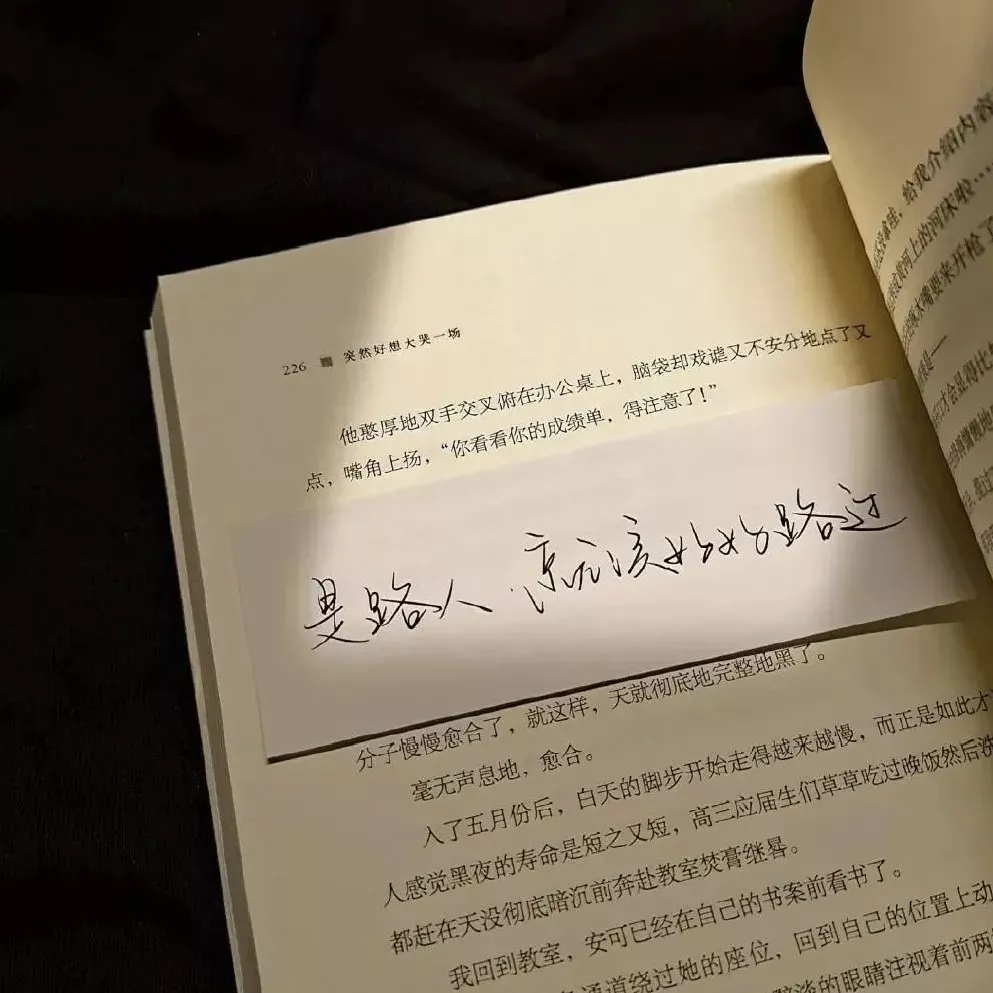 226 突然好想大哭一场
他憨厚地双手交叉俯在办公桌上，脑袋却戏谑又不安分地点了又
点，嘴角上扬，“你看看你的成绩单，得注意了！”
是路人，就应该好好路过
分子慢慢愈合了，就这样，天就彻底地完整地黑了。
毫无声息地，愈合。
入了五月份后，白天的脚步开始走得越来越慢，而正是如此才
人感觉黑夜的寿命是短之又短，高三应届生们草草吃过晚饭然后洗
都赶在天没彻底暗沉前奔赴教室焚膏继晷。
我回到教室，安可已经在自己的书案前看书了。
通道绕过她的座位，回到自己的位置上动
暗淡的眼睛注视着前两
给我介绍内容
河上的河床啦……
大嘴要来开枪了
才会显得比